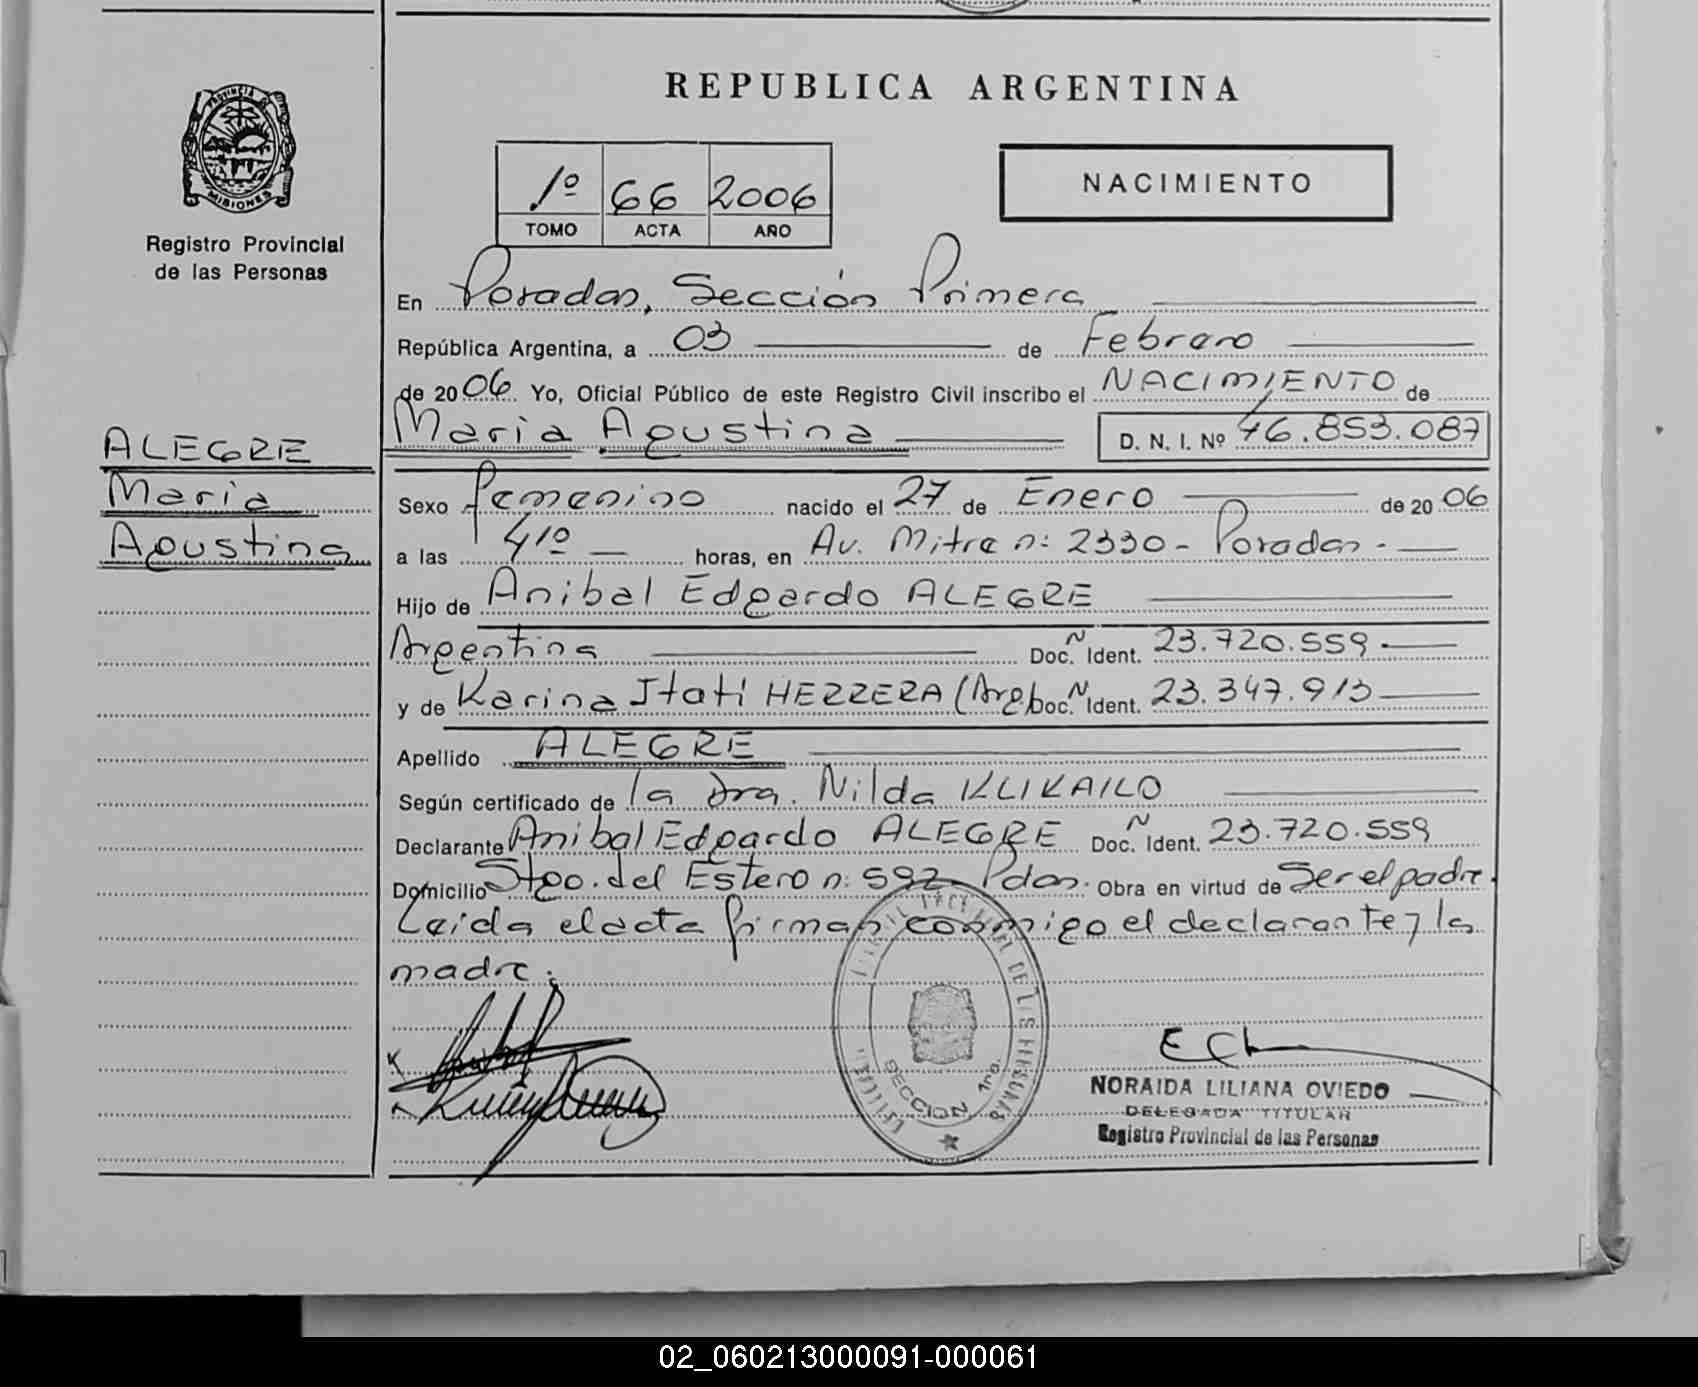 REPUBLICA ARGENTINA
PROVINCIA DE
MISIONES
Registro Provincial
de las Personas
1º 66 2006
TOMO ACTA AÑO
NACIMIENTO
En Posadas, Sección Primera
República Argentina, a 03 de Febrero
de 2006 Yo, Oficial Público de este Registro Civil inscribo el NACIMIENTO de
Maria Agustina D. N. I. Nº 46.853.087
ALEGRE
Maria
Agustina
Sexo femenino nacido el 27 de Enero de 2006
a las 4,10 horas, en Av. Mitre n: 2330 - Posadas -
Hijo de Anibal Edgardo ALEGRE
Argentina Doc.N Ident. 23.720.559
y de Karina Itati HERRERA (Arg) Doc.N Ident. 23.347.913
Apellido ALEGRE
Según certificado de la Dra. Nilda KLIKAILO
Declarante Anibal Edgardo ALEGRE Doc.N Ident. 23.720.559
Domicilio Stgo. del Estero n: 592 - Pdas. Obra en virtud de Ser el padre.
Leida el acta firman conmigo el declarante y la
madre.
DE LAS PERSONAS
SECCION 1ra.
NORAIDA LILIANA OVIEDO
DELEGADA TITULAR
Registro Provincial de las Personas
02_060213000091-000061